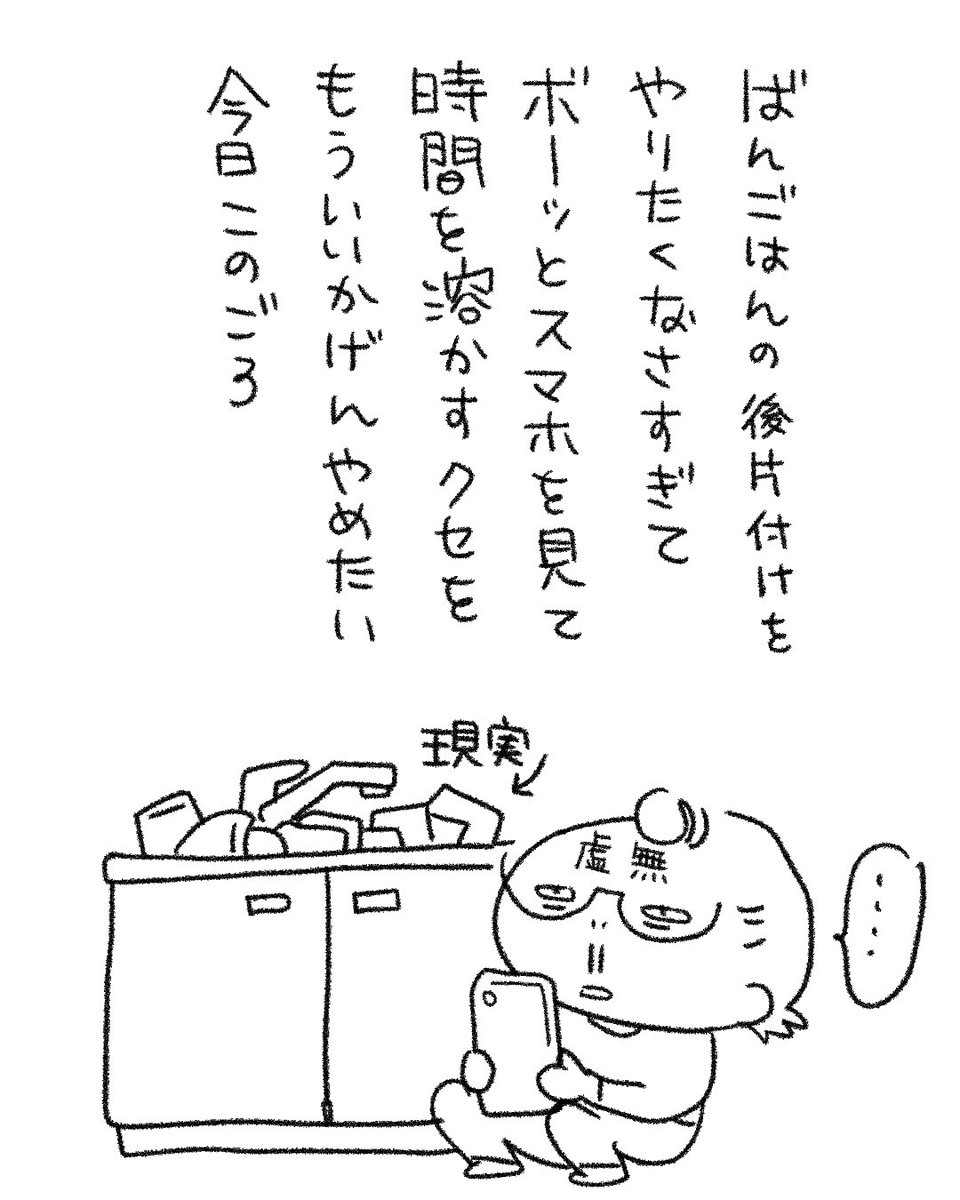 ばんごはんの後片付けを
やりたくなさすぎて
ボーッとスマホを見て
時間を溶かすクセを
もういいかげんやめたい
今日このごろ
現実
虚無
....